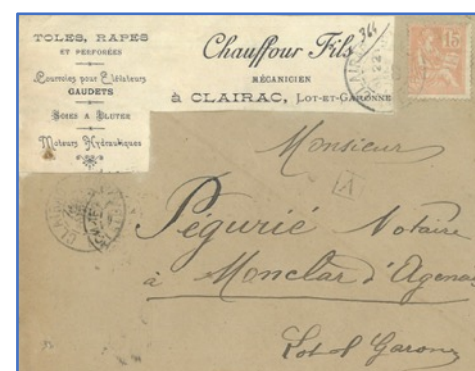 TOLES, RAPES
ET PERFORÉES
Courroies pour Élévateurs
GAUDETS
SOIES A BLUTER
Moteurs Hydrauliques
Chauffour Fils
MÉCANICIEN
à CLAIRAC, LOT-ET-GARONNE
364
CLAIRAC
22
15
Monsieur
Pégurié Notaire
à Monclar d'Agenais
Lot et Garonne